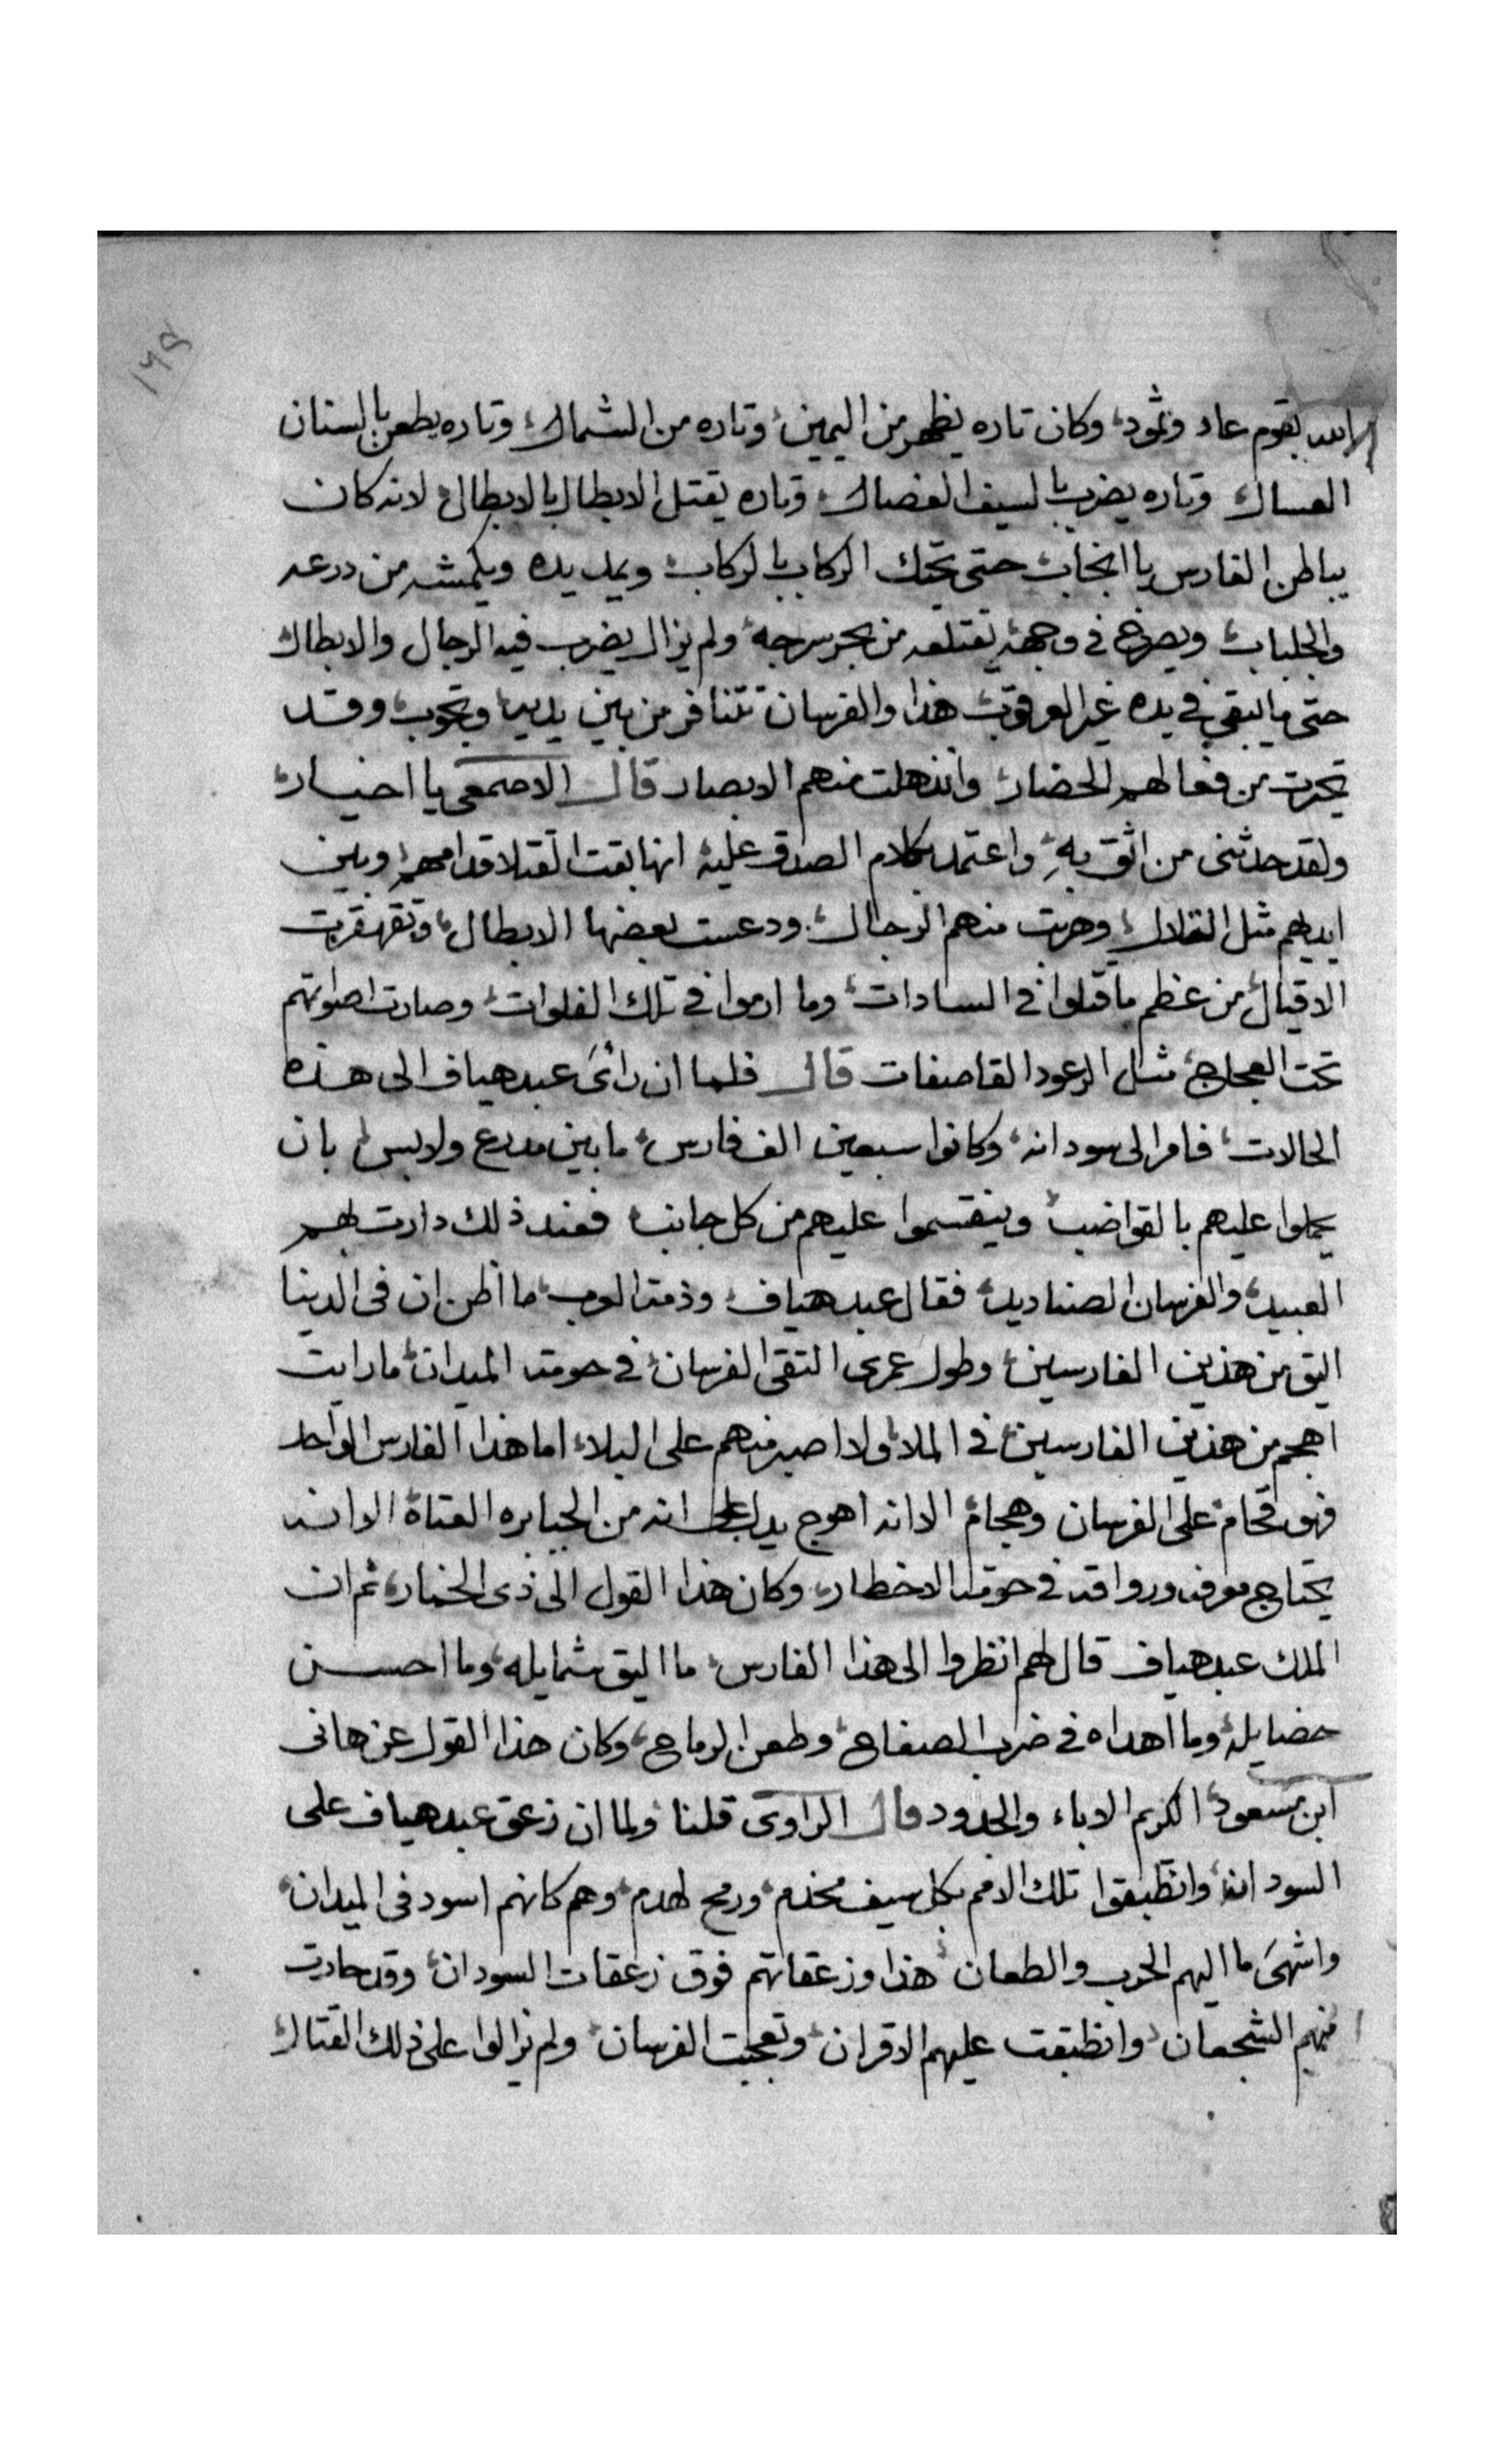 ١٦٩
الله بقوم عاد وثمود، وكان تاره يظهر من اليمين، وتاره من الشمال، وتاره يطعن بالسنان
العسال وتاره يضرب بالسيف الفصال، وتاره يقتل الابطال بالابطال، لانه كان
يباطن الفارس يا انجاب، حتى تحتك الركاب بالركاب، ويمد يده ويكمشه من درعه
والجلباب، ويصرخ في وجهه، يقتلعه من بحر سرجه، ولم يزال يضرب فيه الرجال والابطال،
حتى ما ايبقى في يده غير العرقوب، هذا والفرسان تتنافر من بين يديه، وتجوب، وقد
تحيرت من فعالهم الحضار، وانذهلت منهم الابصار قال الاصمعى يا اخيار،
ولقد حدثنى من اثق به، واعتمد بكلام الصدق عليه، انها بقت القتلا قدامهم، وبين
ايديهم مثل التلال، وهربت منهم الرجال، ودعست بعضها الابطال، وتقهقرت
الاقيال، من عظم ما قتلوا في السادات، وما ارموا في تلك الفلوات، وصارت اصواتهم
تحت العجاج، مثل الرعود القاصفات قال فلما ان رائ عبد هياف الى هذه
الحالات، فامر الى سودانه، وكانوا سبعين الف فارس، ما بين مدرع ولابس، بان
يحملوا عليهم بالقواضب، وينقسموا عليهم من كل جانب، فعند ذلك دارت بهم
العبيد، والفرسان الصناديد، فقال عبد هياف، وذمة العرب، ما اظن ان فى الدينا
اليق من هذين الفارسين، وطول عمرى التقى الفرسان، في حومة الميدان، ما رايت
اهجم من هذين الفارسين، في الملا، ولا اصبر منهم على البلاء، اما هذا الفارس الواحد
فهو قحام، على الفرسان وهجام، الا انه اهوج يدل على انه من الجبابره العتاة، الا انه
يحتاج معرفه وروافه في حومة الاخطار، وكان هذا القول الى ذى الخمار، ثم ان
الملك عبد هياف قال لهم انظروا الى هذا الفارس، ما اليق شمايله، وما احسن
خصايله، وما اهداه في ضرب الصفاح، وطعن الرماح، وكان هذا القول عن هانى
ابن مسعود، الكريم الاباء والجدود قال الراوى قلنا، ولما ان زعق عبد هياف على
السودان، وانطبقوا تلك الامم بكل سيف مخذم، ورمح لهدم، وهم كانهم اسود فى الميدان،
واشهى ما اليهم الحرب والطعان، هذا وزعقاتهم فوق زعقات السودان، وقد حارت
منهم الشجعان، وانطبقت عليهم الاقران، وتعجبت الفرسان، ولم يزالوا على ذلك القتال،